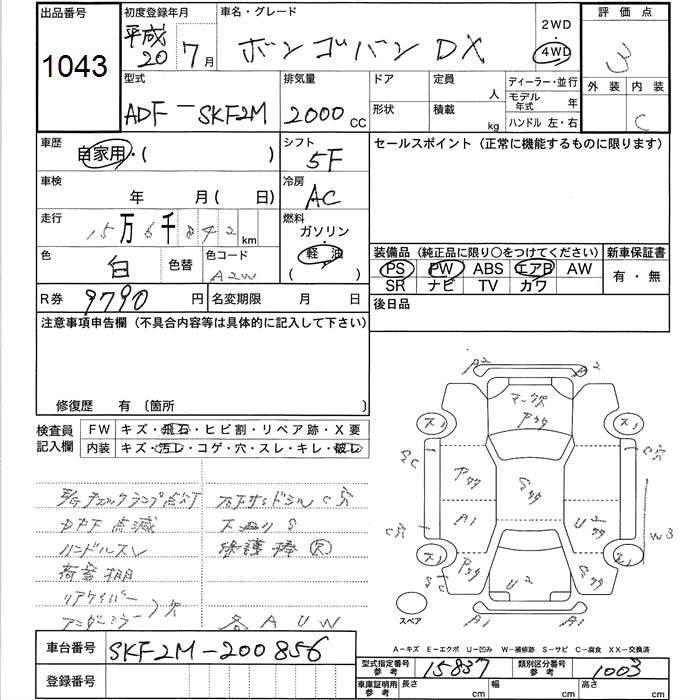 出品番号
1043
初度登録年月
平成20年 7月
車名・グレード
ボンゴバン DX
2WD
4WD
評価点
3
外装 内装
C
型式
ADF-SKF2M
排気量
2000 CC
ドア
形状
定員
人
積載
kg
ディーラー・並行
モデル年式 年
ハンドル 左・右
車歴
自家用・( )
シフト
5F
セールスポイント (正常に機能するものに限ります)
車検
年 月( 日)
冷房
AC
走行
15万6千842km
燃料
ガソリン
軽油
( )
色
白
色替
色コード
A2W
装備品 (純正品に限り○をつけてください)
PS PW ABS エアB AW
SR ナビ TV カワ
新車保証書
有・無
R券 9790円
名変期限 月 日
後日品
注意事項申告欄 (不具合内容等は具体的に記入して下さい)
修復歴 有 〔箇所 〕
検査員記入欄
FW キズ・飛石・ヒビ割・リペア跡・X要
内装 キズ・汚レ・コゲ・穴・スレ・キレ・破レ
E/Gチェックランプ点灯
点滅
ハンドルスレ
荷室棚
リアワイパー
アンダーミラー
下廻りS
各AUW
スペア
A-キズ E-エクボ U-凹み W-補修跡 S-サビ C-腐食 XX-交換済
車台番号
SKF2M-200856
登録番号
型式指定番号参考
15837
類別区分番号参考
1003
車庫証明用参考
長さ cm
幅 cm
高さ cm